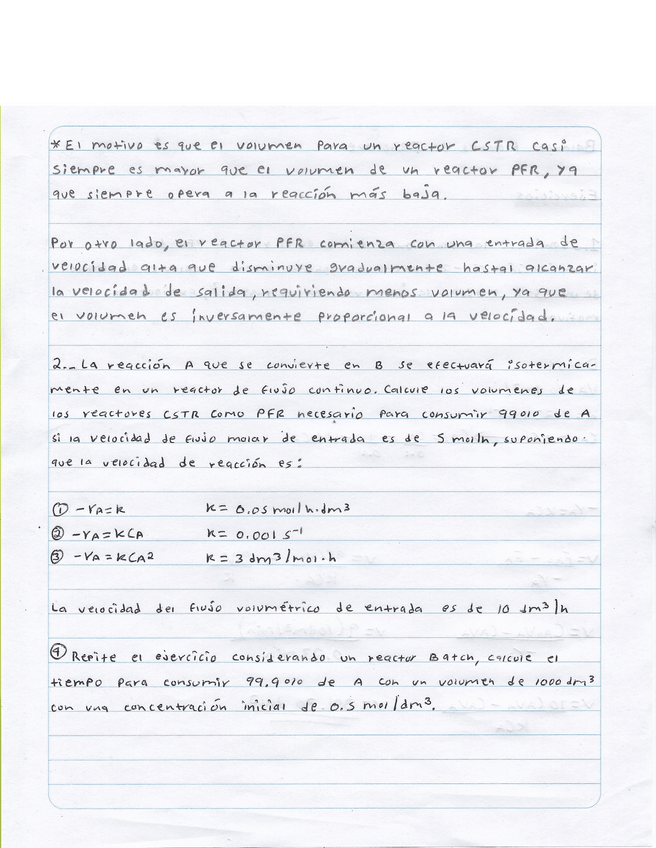 * El motivo es que el volumen para un reactor CSTR casi
siempre es mayor que el volumen de un reactor PFR, ya
que siempre opera a la reacción más baja.
Por otro lado, el reactor PFR comienza con una entrada de
velocidad alta que disminuye gradualmente hastal alcanzar
la velocidad de salida, requiriendo menos volumen, ya que
el volumen es inversamente proporcional a la velocidad.
2.- La reacción A que se convierte en B se efectuará isotermica-
mente en un reactor de flujo continuo. Calcule los volumenes de
los reactores CSTR como PFR necesario para consumir 99% de A
si la velocidad de flujo molar de entrada es de 5 mol/h, suponiendo
que la velocidad de reacción es:
① -rA=k k= 0.05 mol/h·dm³
② -rA=kCA k= 0.001 s⁻¹
③ -rA=kCA2 k= 3 dm³/mol·h
La velocidad del flujo volumétrico de entrada es de 10 dm³/h
④ Repite el ejercicio considerando un reactor Batch, calcule el
tiempo para consumir 99.9% de A con un volumen de 1000 dm³
con una concentración inicial de 0.5 mol/dm³.